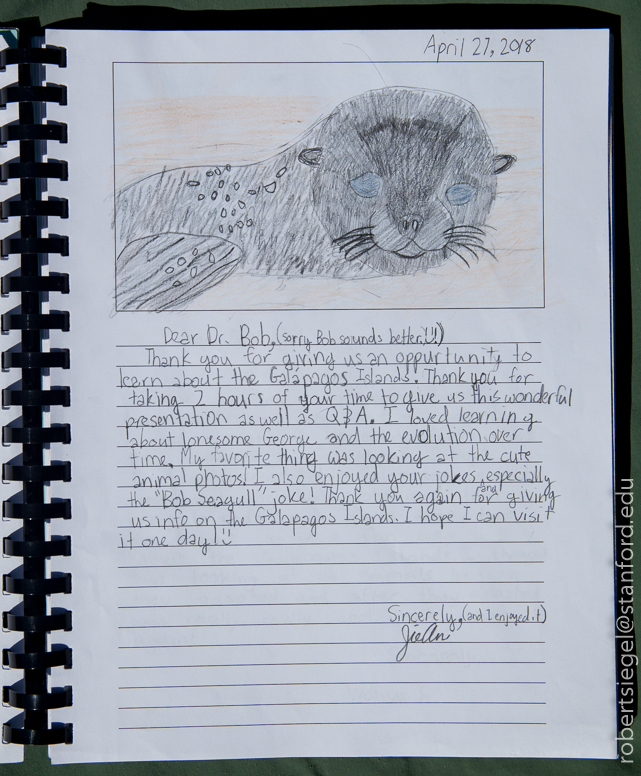 April 27, 2018
Dear Dr. Bob, (sorry Bob sounds better!!)
Thank you for giving us an oppurtunity to
learn about the Galápagos Islands. Thank you for
taking 2 hours of your time to give us this wonderful
presentation as well as Q&A. I loved learning
about lonesome George and the evolution over
time. My favorite thing was looking at the cute
animal photos! I also enjoyed your jokes, especially
the "Bob Seagull" joke! Thank you again for and giving
us info on the Galapagos Islands. I hope I can visit
it one day!
Sincerely, (and I enjoyed it)
JieAn
robertsiegel@stanford.edu